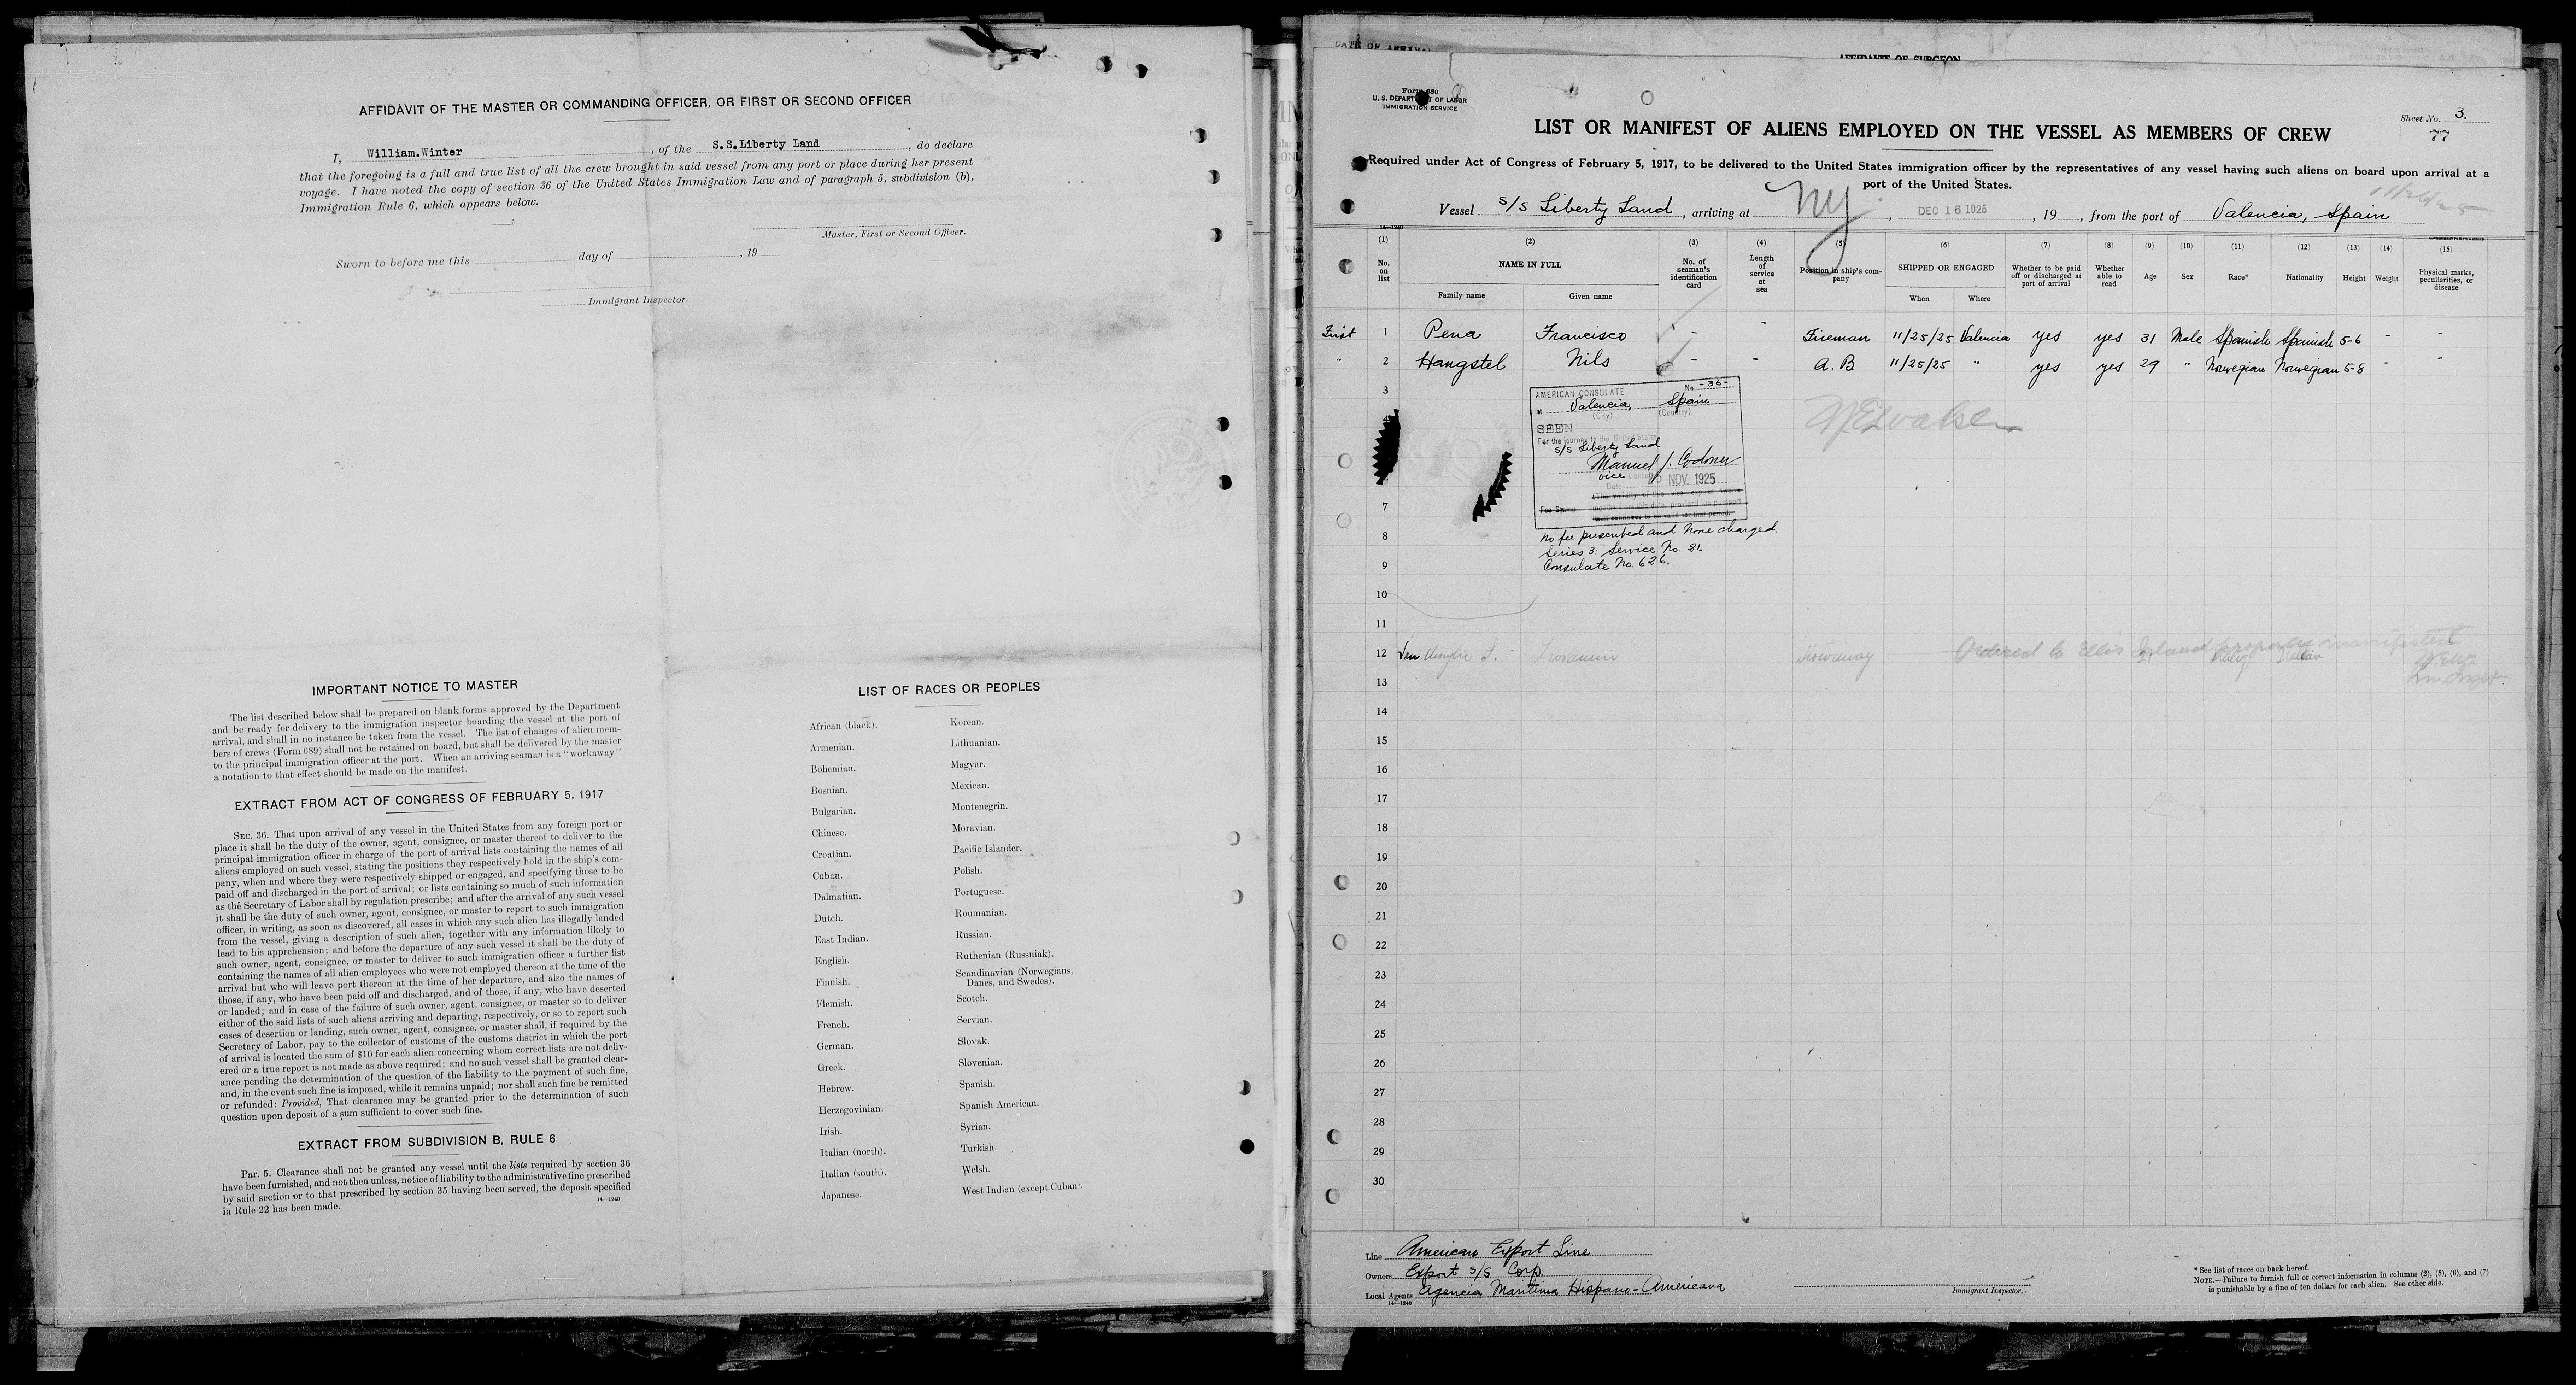 AFFIDAVIT OF THE MASTER OR COMMANDING OFFICER, OR FIRST OR SECOND OFFICER
I, William.Winter, of the S.S.Liberty Land, do declare
that the foregoing is a full and true list of all the crew brought in said vessel from any port or place during her present
voyage. I have noted the copy of section 36 of the United States Immigration Law and of paragraph 5, subdivision (b),
Immigration Rule 6, which appears below.
Master, First or Second Officer.
Sworn to before me this day of , 19
Immigrant Inspector.
IMPORTANT NOTICE TO MASTER
The list described below shall be prepared on blank forms approved by the Department
and be ready for delivery to the immigration inspector boarding the vessel at the port of
arrival, and shall in no instance be taken from the vessel. The list of changes of alien mem-
bers of crews (Form 689) shall not be retained on board, but shall be delivered by the master
to the principal immigration officer at the port. When an arriving seaman is a "workaway"
a notation to that effect should be made on the manifest.
EXTRACT FROM ACT OF CONGRESS OF FEBRUARY 5, 1917
SEC. 36. That upon arrival of any vessel in the United States from any foreign port or
place it shall be the duty of the owner, agent, consignee, or master thereof to deliver to the
principal immigration officer in charge of the port of arrival lists containing the names of all
aliens employed on such vessel, stating the positions they respectively hold in the ship's com-
pany, when and where they were respectively shipped or engaged, and specifying those to be
paid off and discharged in the port of arrival; or lists containing so much of such information
as the Secretary of Labor shall by regulation prescribe; and after the arrival of any such vessel
it shall be the duty of such owner, agent, consignee, or master to report to such immigration
officer, in writing, as soon as discovered, all cases in which any such alien has illegally landed
from the vessel, giving a description of such alien, together with any information likely to
lead to his apprehension; and before the departure of any such vessel it shall be the duty of
such owner, agent, consignee, or master to deliver to such immigration officer a further list
containing the names of all alien employees who were not employed thereon at the time of the
arrival but who will leave port thereon at the time of her departure, and also the names of
those, if any, who have been paid off and discharged, and of those, if any, who have deserted
or landed; and in case of the failure of such owner, agent, consignee, or master so to deliver
either of the said lists of such aliens arriving and departing, respectively, or so to report such
cases of desertion or landing, such owner, agent, consignee, or master shall, if required by the
Secretary of Labor, pay to the collector of customs of the customs district in which the port
of arrival is located the sum of $10 for each alien concerning whom correct lists are not deliv-
ered or a true report is not made as above required; and no such vessel shall be granted clear-
ance pending the determination of the question of the liability to the payment of such fine,
and, in the event such fine is imposed, while it remains unpaid; nor shall such fine be remitted
or refunded: Provided, That clearance may be granted prior to the determination of such
question upon deposit of a sum sufficient to cover such fine.
EXTRACT FROM SUBDIVISION B, RULE 6
Par. 5. Clearance shall not be granted any vessel until the lists required by section 36
have been furnished, and not then unless, notice of liability to the administrative fine prescribed
by said section or to that prescribed by section 35 having been served, the deposit specified
in Rule 22 has been made.
14—1240
LIST OF RACES OR PEOPLES
African (black).
Armenian.
Bohemian.
Bosnian.
Bulgarian.
Chinese.
Croatian.
Cuban.
Dalmatian.
Dutch.
East Indian.
English.
Finnish.
Flemish.
French.
German.
Greek.
Hebrew.
Herzegovinian.
Irish.
Italian (north).
Italian (south).
Japanese.
Korean.
Lithuanian.
Magyar.
Mexican.
Montenegrin.
Moravian.
Pacific Islander.
Polish.
Portuguese.
Roumanian.
Russian.
Ruthenian (Russniak).
Scandinavian (Norwegians,
Danes, and Swedes).
Scotch.
Servian.
Slovak.
Slovenian.
Spanish.
Spanish American.
Syrian.
Turkish.
Welsh.
West Indian (except Cuban).
DATE OF ARRIVAL
AFFIDAVIT OF SURGEON
Form 680
U. S. DEPARTMENT OF LABOR
IMMIGRATION SERVICE
Sheet No. 3.
77
LIST OR MANIFEST OF ALIENS EMPLOYED ON THE VESSEL AS MEMBERS OF CREW
Required under Act of Congress of February 5, 1917, to be delivered to the United States immigration officer by the representatives of any vessel having such aliens on board upon arrival at a
port of the United States.
11/26/25
Vessel S/S Liberty Land, arriving at NY, DEC 16 1925, 19, from the port of Valencia, Spain
14—1240
(1) (2) (3) (4) (5) (6) (7) (8) (9) (10) (11) (12) (13) (14) (15)
No. on list
NAME IN FULL
Family name
Given name
No. of seaman's identification card
Length of service at sea
Position in ship's com-pany
SHIPPED OR ENGAGED
When
Where
Whether to be paid off or discharged at port of arrival
Whether able to read
Age
Sex
Race*
Nationality
Height
Weight
Physical marks, peculiarities, or disease
First 1 Pena Francisco - - Fireman 11/25/25 Valencia yes yes 31 Male Spanish Spanish 5-6 - -
" 2 Hangstel Nils - - A.B 11/25/25 " yes yes 29 " Norwegian Norwegian 5-8 - -
3
AMERICAN CONSULATE No. -36-
at Valencia, Spain
(City) (Country)
SEEN
For the journey to the United States
S/S Liberty Land
Manuel J. Codoner
vice Consul
Date 25 NOV. 1925
Fee Stamp
7
8
No fee prescribed and None charged.
Series 3. Service No. 81.
9
Consulate No. 626.
10
11
12 Stowaway Ordered to Ellis Island manifested
13
14
15
16
17
18
19
20
21
22
23
24
25
26
27
28
29
30
Line American Export Line
Owners Export S/S Corp.
Local Agents Agencia Maritima Hispano-Americana
14—1240
Immigrant Inspector.
* See list of races on back hereof.
NOTE.—Failure to furnish full or correct information in columns (2), (5), (6), and (7)
is punishable by a fine of ten dollars for each alien. See other side.